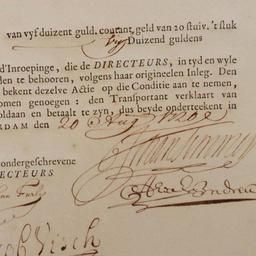 van vyf duizent guld. courant, geld van 20 stuiv. 't stuk
Duizend guldens
d'Inroepinge, die de DIRECTEURS, in tyd en wyle
den te behooren, volgens haar origineelen Inleg. Den
bekent dezelve Actie op die Conditie aan te nemen,
omen genoegen: den Transportant verklaart van
oldaan en betaalt te zyn, dus beyde onderteekent in
RDAM den 20
ondergeschrevene
ECTEURS
Visch